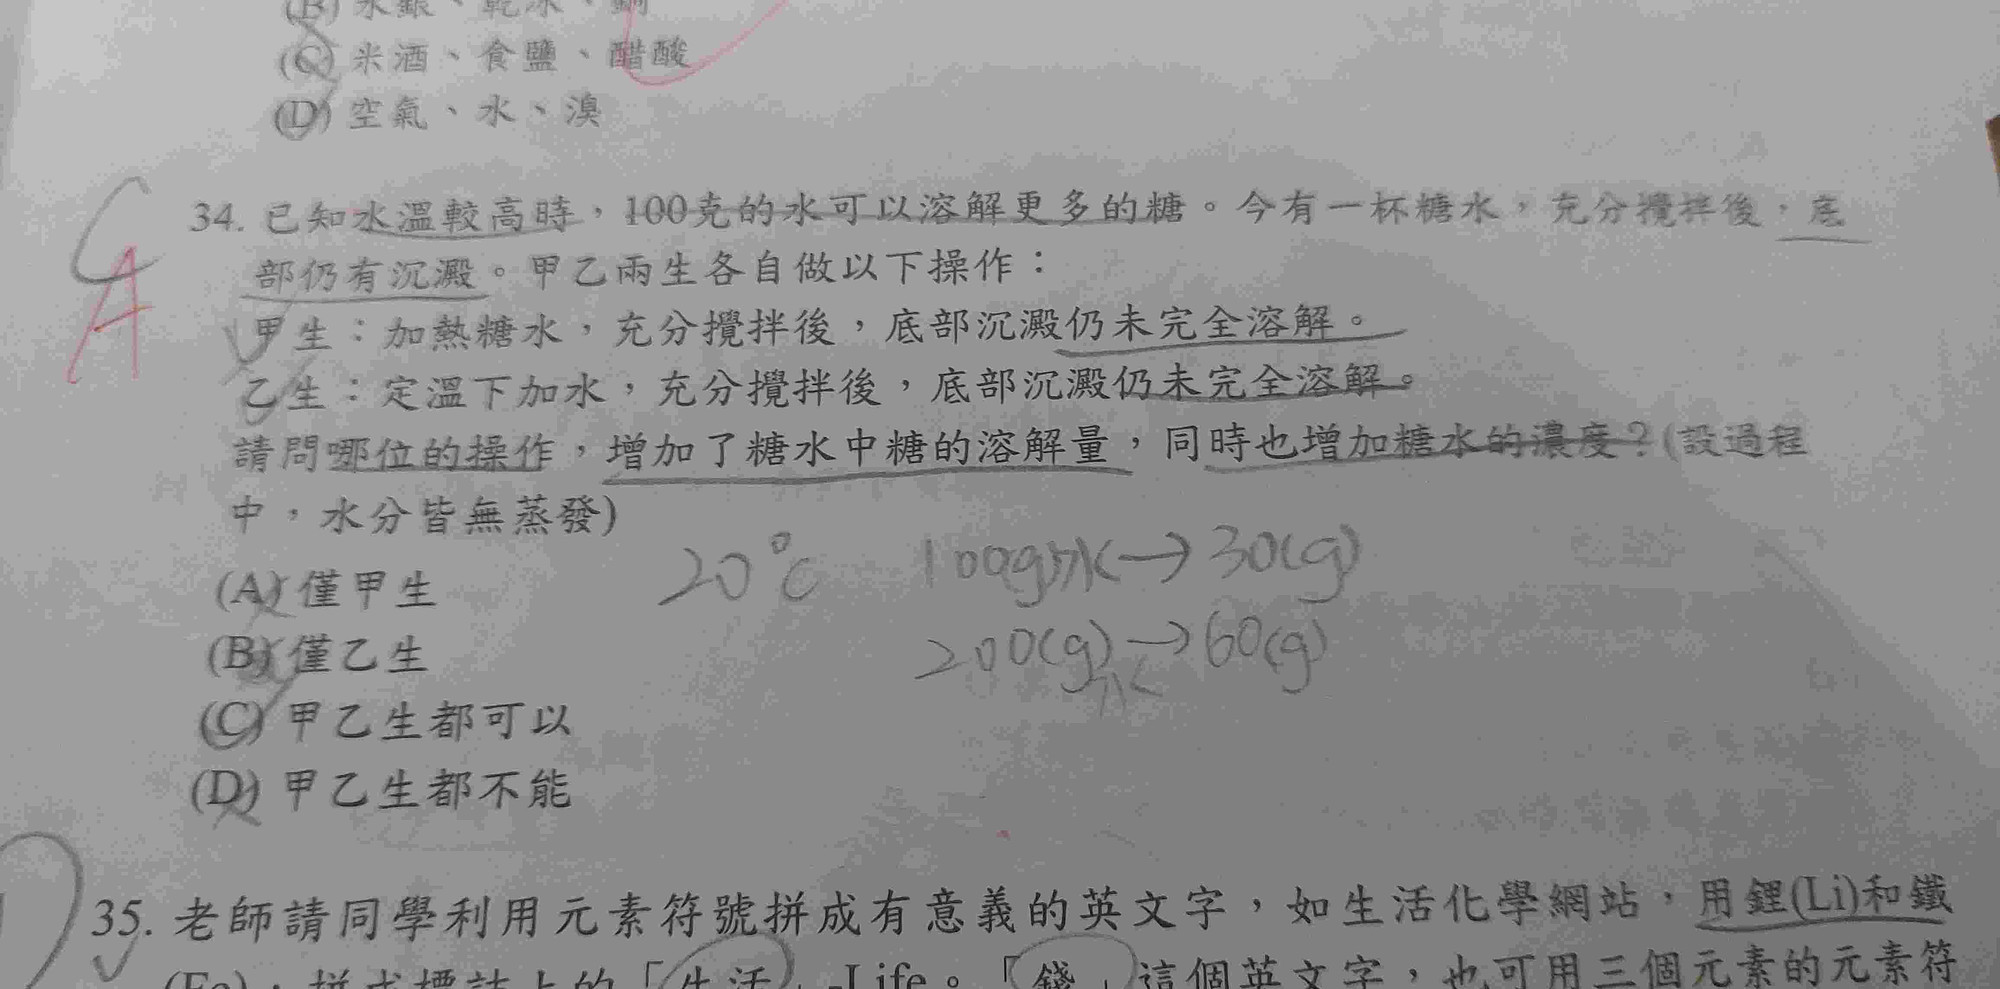 (B) 水銀、乾冰、鋼
(C) 米酒、食鹽、醋酸
(D) 空氣、水、溴
C
A
34. 已知水溫較高時，100克的水可以溶解更多的糖。今有一杯糖水，充分攪拌後，底
部仍有沉澱。甲乙兩生各自做以下操作：
甲生：加熱糖水，充分攪拌後，底部沉澱仍未完全溶解。
乙生：定溫下加水，充分攪拌後，底部沉澱仍未完全溶解。
請問哪位的操作，增加了糖水中糖的溶解量，同時也增加糖水的濃度？(設過程
中，水分皆無蒸發)
20°C 100g水→30(g)
200(g)水→60(g)
(A) 僅甲生
(B) 僅乙生
(C) 甲乙生都可以
(D) 甲乙生都不能
D
35. 老師請同學利用元素符號拼成有意義的英文字，如生活化學網站，用鋰(Li)和鐵
(Fe)，拼成標誌上的「生活」-Life。「錢」這個英文字，也可用三個元素的元素符